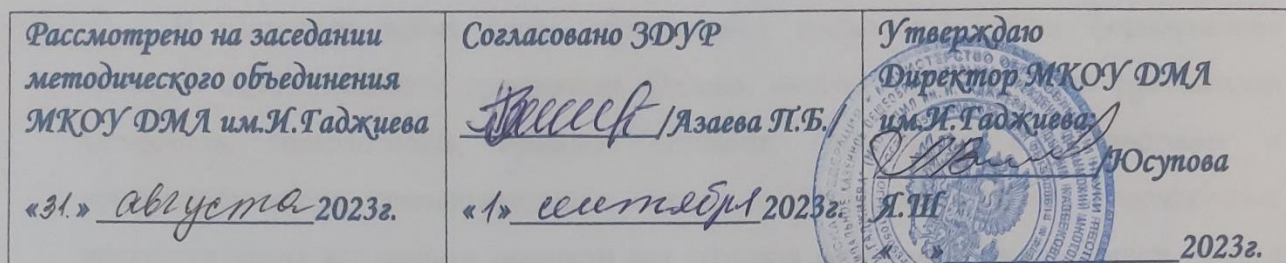 Рассмотрено на заседании
методического объединения
МКОУ ДМЛ им.И.Гаджиева
«31.» августа 2023г.
Согласовано ЗДУР
/Азаева П.Б./
«1» сентября 2023г.
Утверждаю
Директор МКОУ ДМЛ
им.И.Гаджиева
/Юсупова
Я.Ш
« » 2023г.